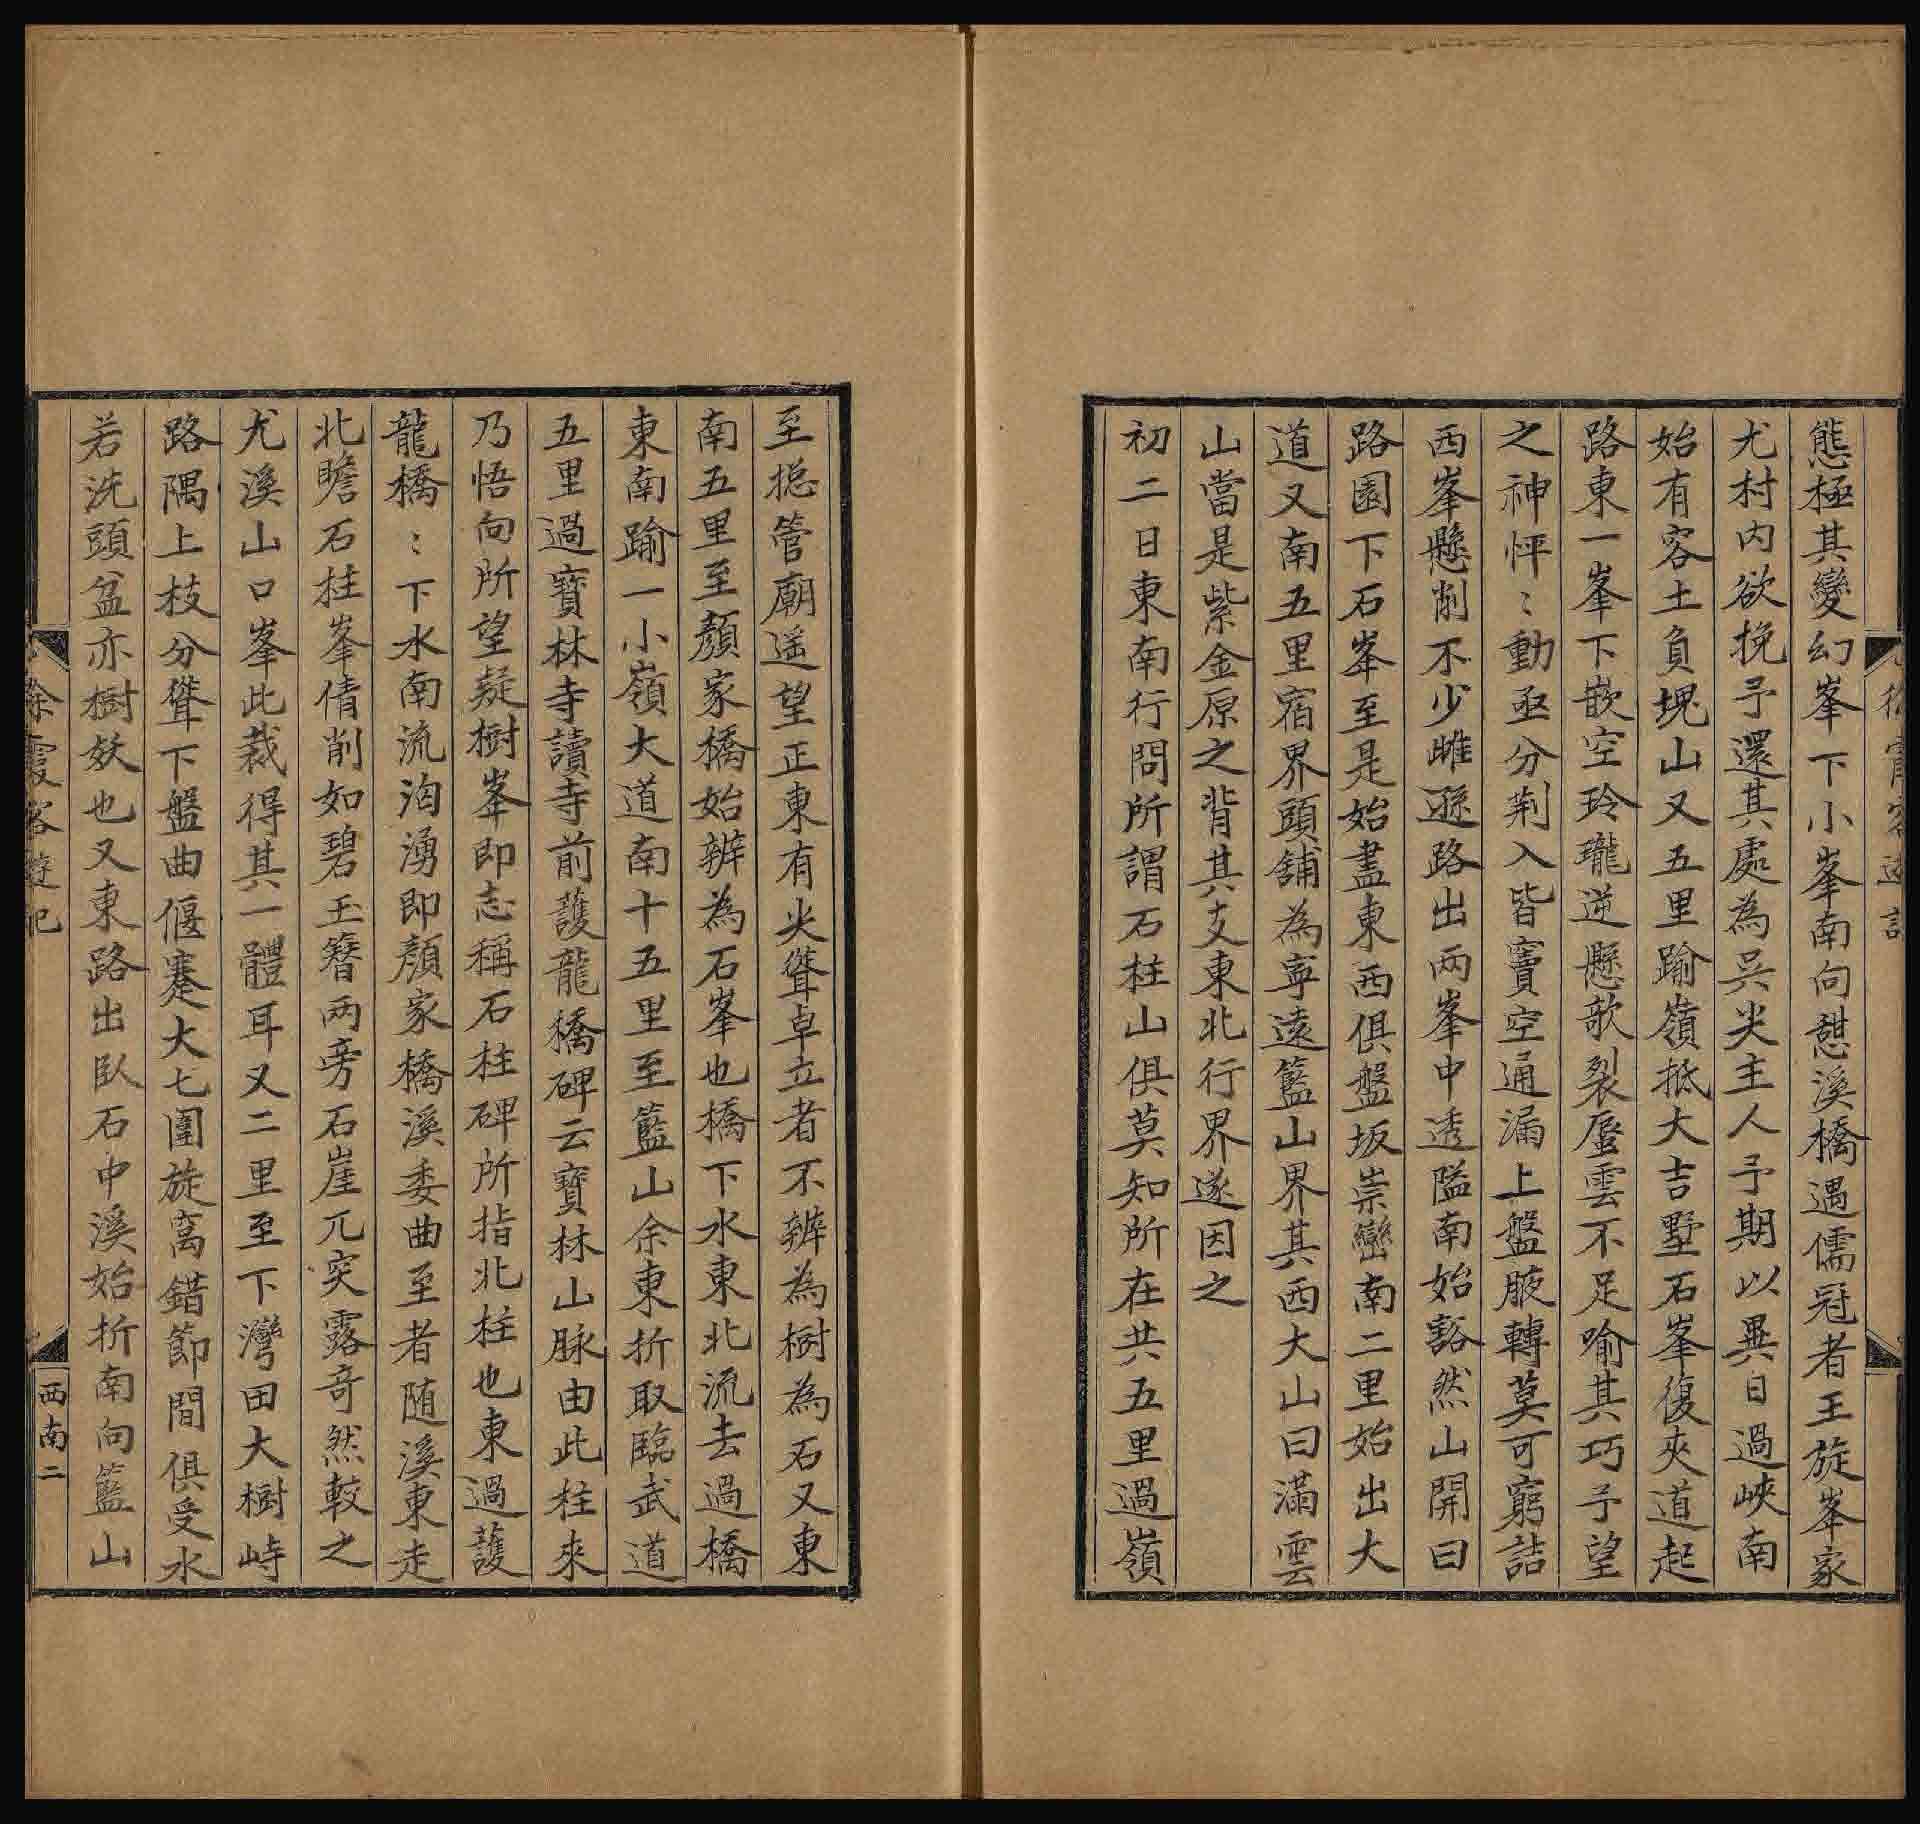 態極其變幻峯下小峯南向憇溪橋遇儒冠者王旋峯家
尤村內欲挽予還其處為吳尖主人予期以異日過峽南
始有容土負塊山又五里踰嶺抵大吉墅石峯復夾道起
路東一峯下嵌空玲瓏逆懸欹裂蜃雲不足喻其巧予望
之神怦〻動亟分荆入皆竇空通漏上盤腋轉莫可窮詰
西峯懸削不少雌遜路出兩峯中透隘南始豁然山開曰
路園下石峯至是始盡東西俱盤坂崇巒南二里始出大
道又南五里宿界頭舖為寧遠籃山界其西大山曰滿雲
山當是紫金原之背其支東北行界遂因之
初二日東南行問所謂石柱山俱莫知所在共五里過嶺
至揔管廟遥望正東有尖聳卓立者不辨為樹為石又東
南五里至顏家橋始辨為石峯也橋下水東北流去過橋
東南踰一小嶺大道南十五里至籃山余東折取臨武道
五里過寶林寺讀寺前護龍橋碑云寶林山脉由此柱來
乃悟向所望疑樹峯即志稱石柱碑所指北柱也東過護
龍橋〻下水南流洶湧即顏家橋溪委曲至者随溪東走
北瞻石柱峯倩削如碧玉簪兩旁石崖兀突露奇然較之
尤溪山口峯此裁得其一體耳又二里至下灣田大樹峙
路隅上枝分聳下盤曲偃蹇大七圍旋窩錯節間俱受水
若洗頭盆亦樹妖也又東路出臥石中溪始折南向籃山
徐霞客遊記
西南二